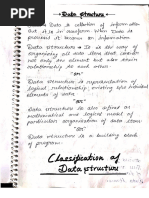 Data Structure
Data is collection of information
But it is in raw form when Data is
processed it become an information.
Data structure = It is the way of
organising all data item that consist
not only the element but also their
relationship of each and other.
"or"
Data structure is representation of
logical relationship existing b/w individual
elements of data
"or"
Data structure is also defined as
mathematical and logical model of
particular organization of data item
"or"
Data structure is a building block
of program.
Classification of
Data structure